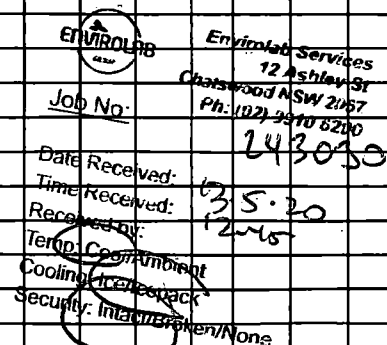 ENVIROLAB
Envirolab Services
12 Ashley St
Chatswood NSW 2067
Ph: (02) 9910 6200
Job No: 243030
Date Received: 13.5.20
Time Received: 1245
Received by:
Temp: Cool/Ambient
Cooling: Ice/Icepack
Security: Intact/Broken/None